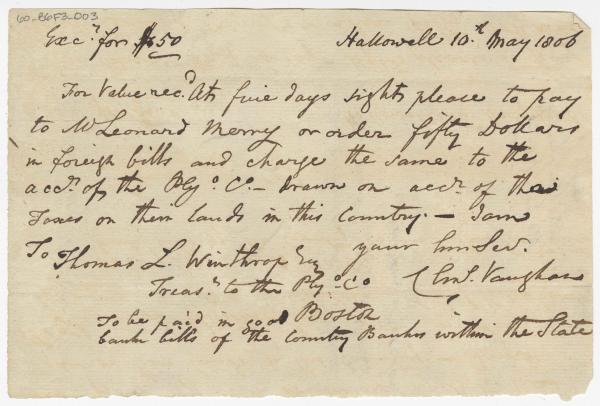 60-B6F3-003
Exc.^e for $50 Hallowell 10.th May 1806
For Value rec.d At five days sight please to pay
to Mr Leonard Merry or order fifty Dollars
in foreign bills and charge the same to the
acc.t of the Ply.o C.o – Drawn on acc.t of the
Taxes on their lands in this Country. – I am
your hm Ser.
To Thomas L. Winthrop Esq
Treas.r to the Ply.o C.o
Boston
Vaughan
To be paid in good
bank bills of the Country Banks within the State